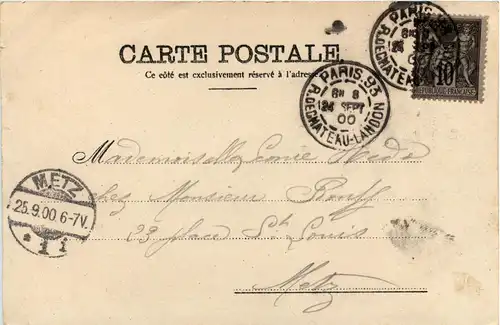 CARTE POSTALE.
Ce côté est exclusivement réservé à l'adresse
PARIS.93
6E 8
24 SEPT
00
R.DE CHATEAU-LANDON
PARIS
R.DE CHATEAU
10
REPUBLIQUE FRANÇAISE
METZ
25.9.00.6-7V.
* 1 i
Mademoiselle
chez Monsieur
23 place St. Louis
Metz